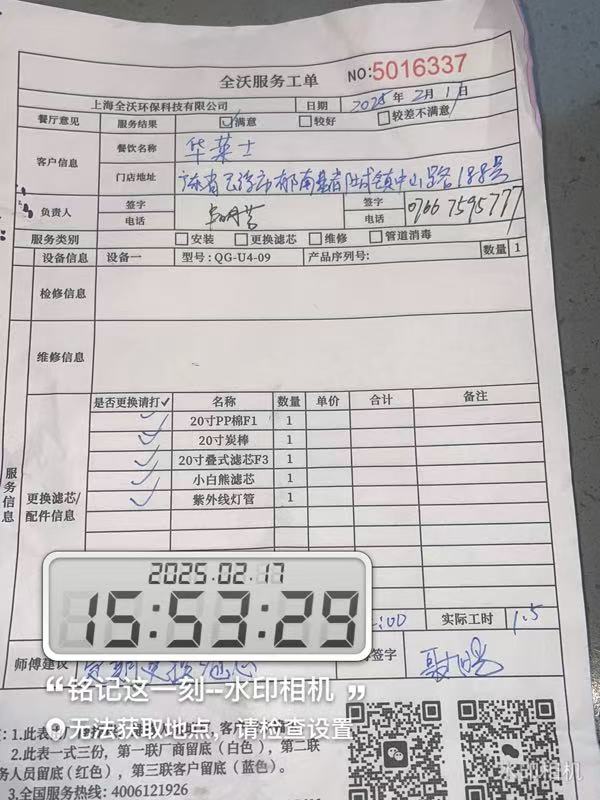 全沃服务工单
NO:5016337
上海全沃环保科技有限公司 日期 2025年2月1日
餐厅意见 服务结果 满意 较好 较差不满意
客户信息 餐饮名称 华莱士
门店地址 广东省云浮市郁南县都城镇中山路188号
负责人 签字 签字
电话 电话 0766 7595777
服务类别 安装 更换滤芯 维修 管道消毒
设备信息 设备一 型号:QG-U4-09 产品序列号: 数量 1
检修信息
维修信息
服务信息
是否更换请打✓ 名称 数量 单价 合计 备注
✓ 20寸PP棉F1 1
✓ 20寸炭棒 1
✓ 20寸叠式滤芯F3 1
✓ 小白熊滤芯 1
✓ 紫外线灯管 1
更换滤芯/
配件信息
2025.02.17
15:53:29
:00 实际工时 1.5
师傅建议 定期更换滤芯 签字
“铭记这一刻--水印相机”
无法获取地点,请检查设置
:1.此表
2.此表一式三份,第一联厂商留底(白色),第二联
务人员留底(红色),第三联客户留底(蓝色)。
3.全国服务热线:4006121926
水印相机